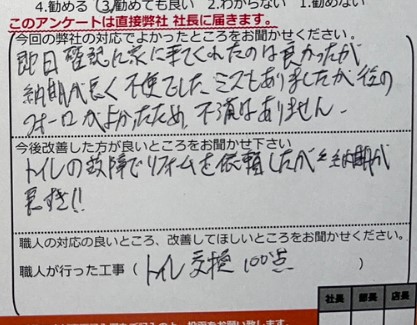 4.勧める ③勧めても良い 2.わからない 1.勧めない
このアンケートは直接弊社 社長に届きます。
今回の弊社の対応でよかったところをお聞かせください。
即日確認に家に来てくれたのは良かったが
納期が長く不便でした ミスもありましたが後の
フォローがよかったため 不満はありません。
今後改善した方が良いところをお聞かせ下さい
トイレの故障でリフォームを依頼したが 納期が
長すぎ!!
職人の対応の良いところ、改善してほしいところをお聞かせください。
職人が行った工事（トイレ交換 100点 ）
社長 部長 店長